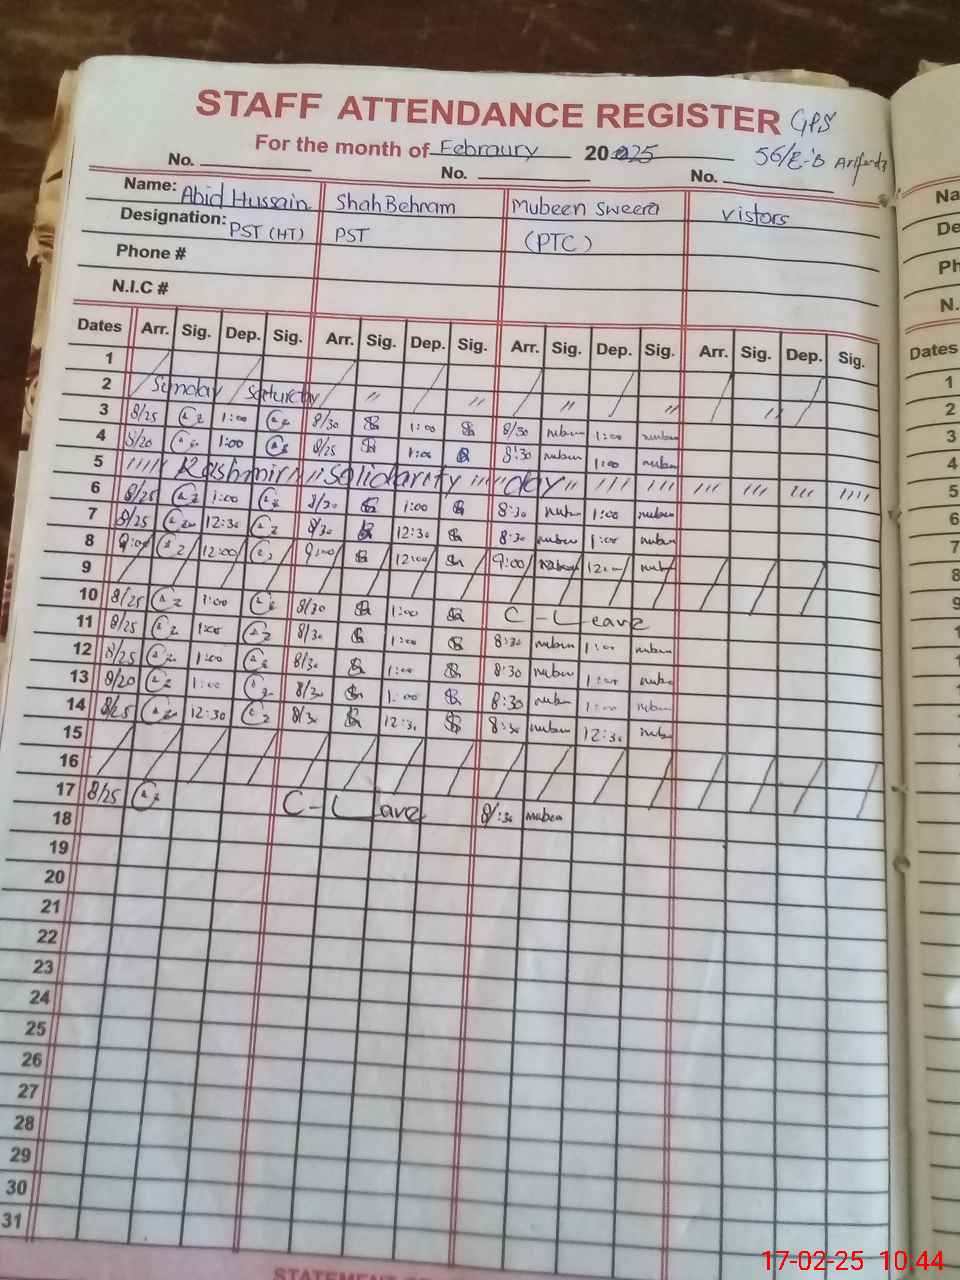 STAFF ATTENDANCE REGISTER GPS
For the month of Febraury 2025 56/E-B
No. No. No.
Name: Abid Hussain Shah Behram Mubeen Sweera Vistors
Designation: PST (HT) PST (PTC)
Phone #
N.I.C #
Dates Arr. Sig. Dep. Sig. Arr. Sig. Dep. Sig. Arr. Sig. Dep. Sig. Arr. Sig. Dep. Sig.
1
2 Sunday / Saturday " " " " "
3 8/25 1:00 8/30 1:00 8/30 muben 1:00 muben
4 8/20 1:00 8/25 1:00 8:30 muben 1:00 muben
5 Kashmir solidarity day
6 8/25 1:00 8/30 1:00 8:30 muben 1:00 muben
7 8/25 12:30 8/30 12:30 8:30 muben 1:00 muben
8 9:00 12:00 9:00 12:00 9:00 muben 12:00 muben
9
10 8/25 1:00 8/30 1:00 C-Leave
11 8/25 1:00 8/30 1:00 8:30 muben 1:00 muben
12 8/25 1:00 8/30 1:00 8:30 muben 1:00 muben
13 8/20 1:00 8/30 1:00 8:30 muben 1:00 muben
14 8/25 12:30 8/30 12:30 8:30 muben 12:30 muben
15
16
17 8/25 C-Leave 8/:30 muben
18
19
20
21
22
23
24
25
26
27
28
29
30
31
Na
De
Ph
N.
Dates
1
2
3
4
5
6
7
8
9
17-02-25 10:44